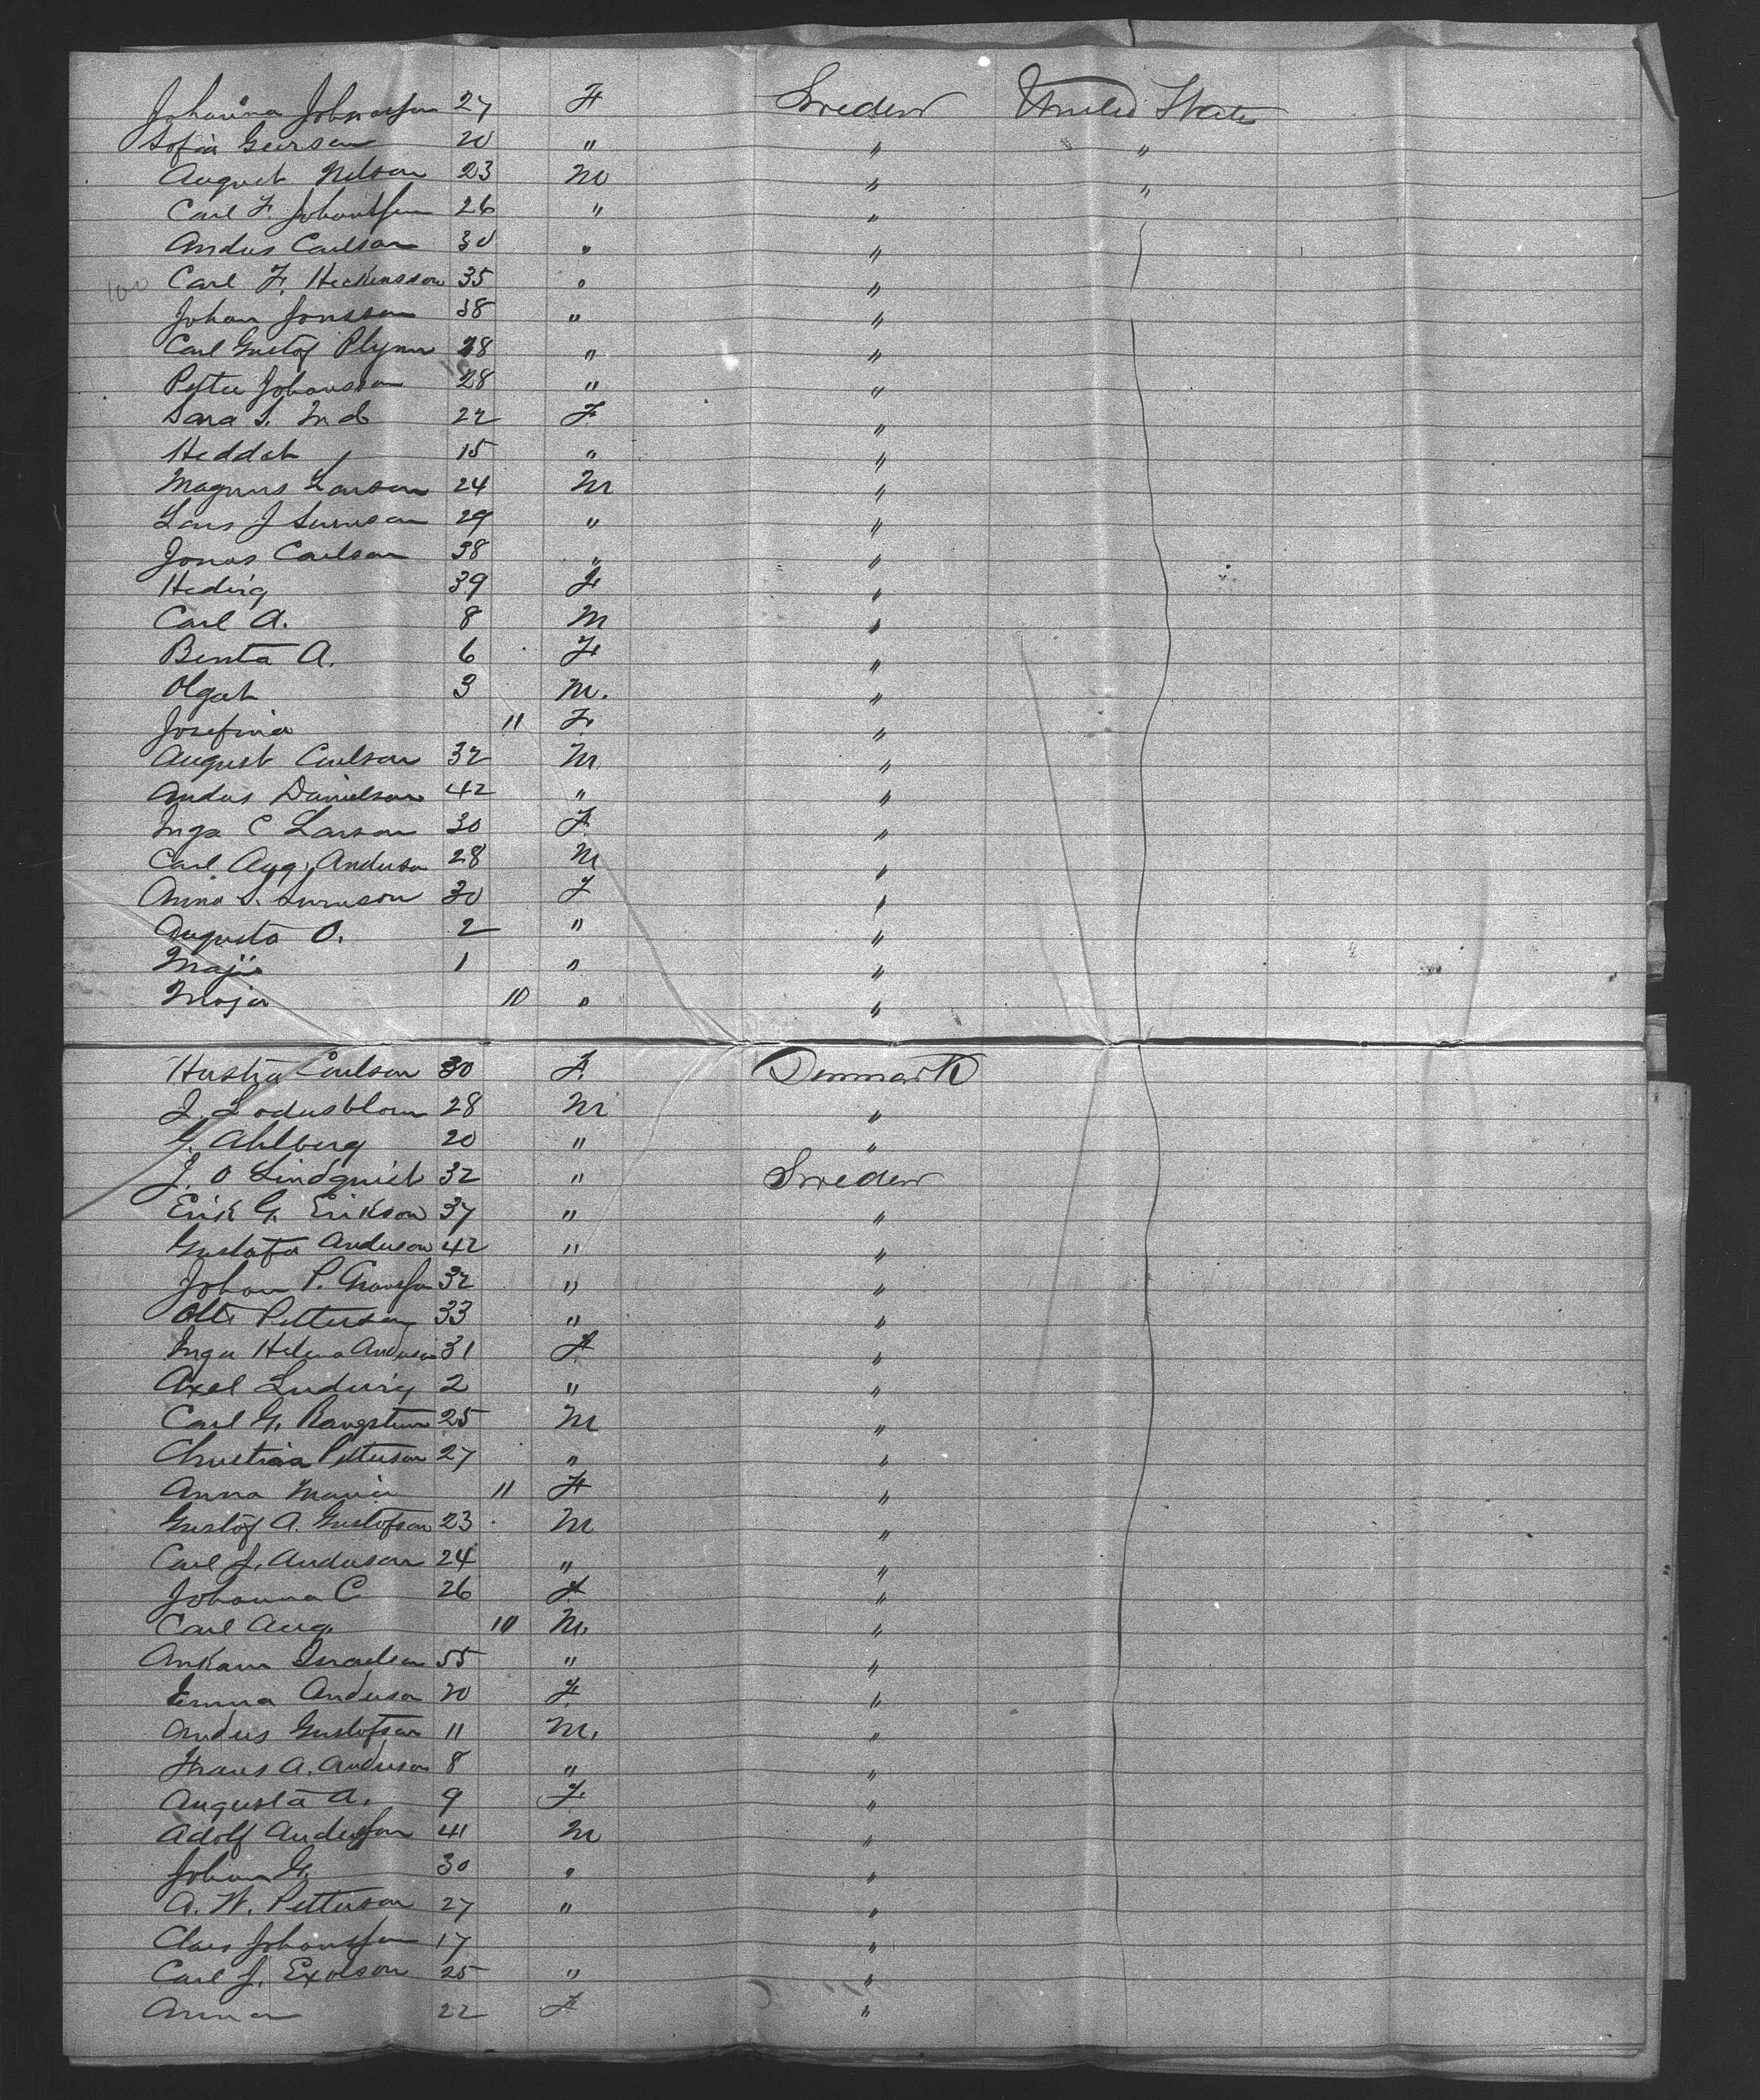 Johanna Johnasson 27 F Sweden United States
Sofia Geerson 20 " " "
August Nelson 23 M " "
Carl F. Johansson 26 " "
Andus Carlson 30 " "
100 Carl F. Heckensson 35 " "
Johan Jonsson 38 " "
Carl Gustof Plymr 28 " "
Petter Johansson 28 " "
Sara S. 22 F "
Heddah 15 " "
Magnus Larson 24 M "
Lars J 29 " "
Jonas Carlson 38 " "
Hedvig 39 F "
Carl A. 8 M "
Benta A. 6 F "
Olgah 3 M. "
Josefina 11 F. "
August Carlson 32 M. "
Andus Danielson 42 " "
Inga C Larson 30 F. "
Carl Aug. Anderson 28 M "
Anna S. 30 F "
Augusta O. 2 " "
Maji 1 " "
Maja 10 " "
Carlson 30 F. Denmark
J. Lodusblom 28 M "
G. Ahlberg 20 " "
J. O Lindquist 32 " Sweden
Erik G. Erikson 37 " "
Gustafa Anderson 42 " "
Johan P. 32 " "
Petterson 33 " "
Inga Helena Anderson 31 F "
Axel Ludwig 2 " "
Carl G. Rangstrom 25 M "
Christina Petterson 27 " "
Anna Maria 11 F "
Gustof A. Gustofson 23 M "
Carl J. Anderson 24 " "
Johanna C 26 F "
Carl Aug. 10 M. "
Israelson 55 " "
Emma Anderson 20 F. "
Andus Gustofson 11 M. "
Frans A. Anderson 8 " "
Augusta A. 9 F. "
Adolf Andersson 41 M "
Johan G. 30 " "
A. W. Petterson 27 " "
Claes Johansson 17 "
Carl J. Exolson 25 " "
Anna 22 F "